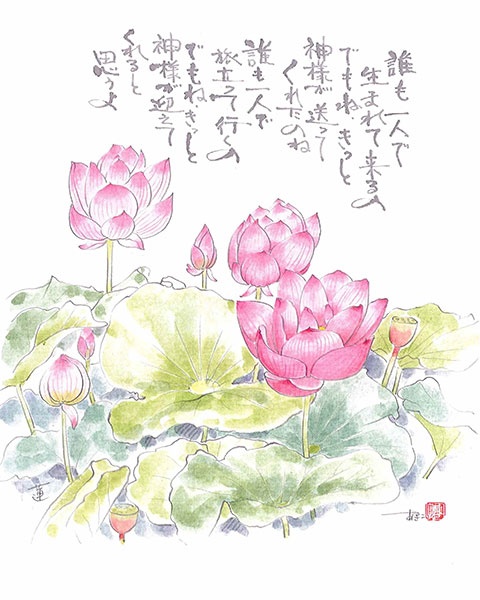 誰も一人で
生まれて来るの
でもねきっと
神様が送って
くれたのね
誰も一人で
旅立って行くの
でもねきっと
神様が迎えて
くれると
思うよ
蓮